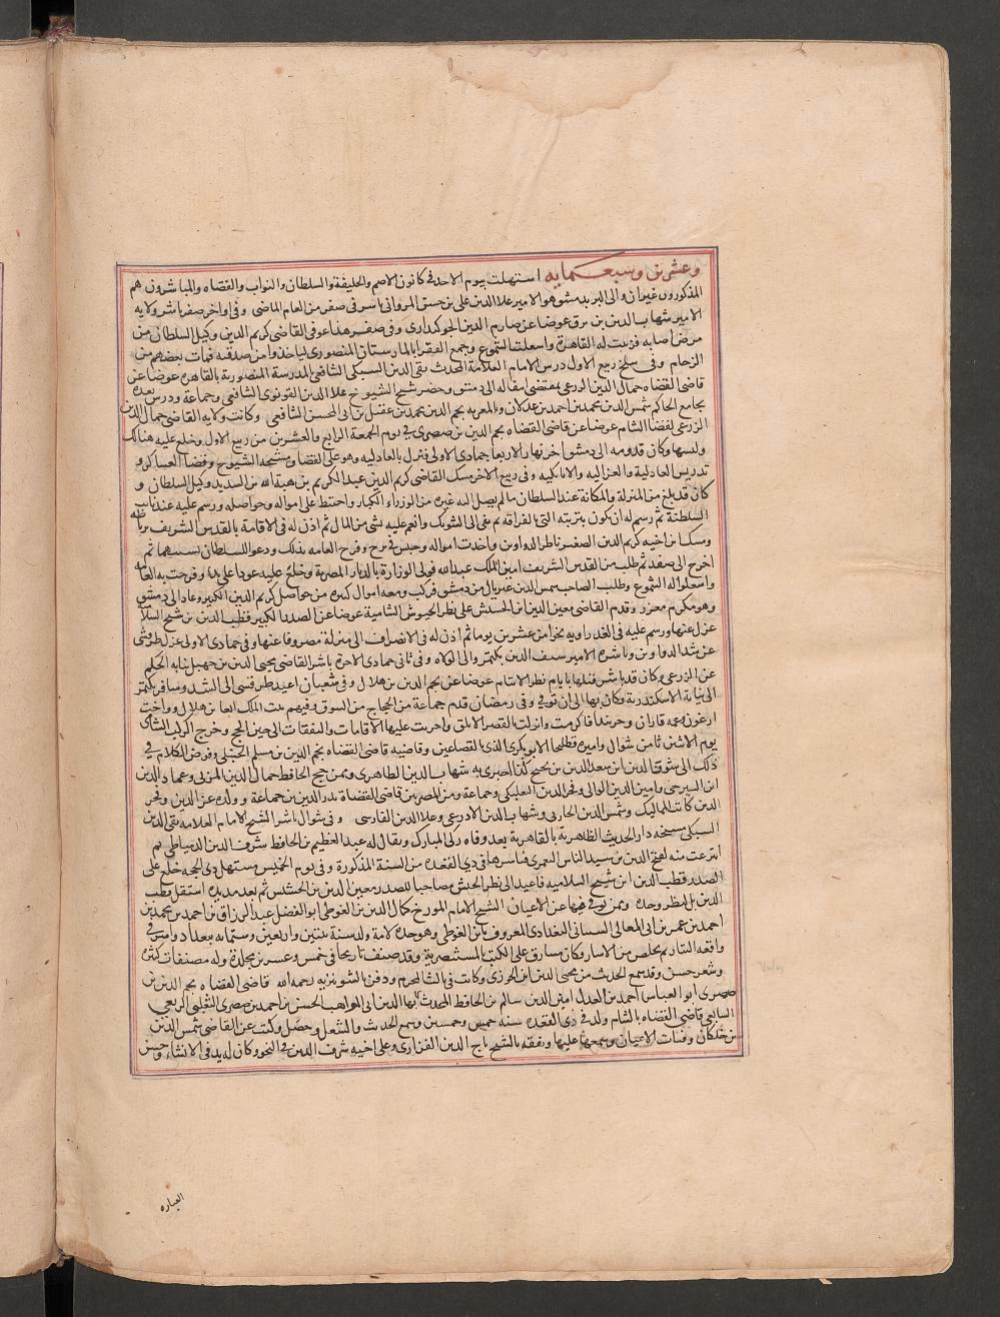 وعشرين وسبعمايه استهلت بيوم الاحد في كانون الاصم والخليفة والسلطان والنواب والقضاه والمباشرون هم
المذكورون غير ان والى البر بدمشق هو الامير علا الدين على بن حسن المروانى باشر فى صفر من العام الماضى وفى اواخر صفر باشر ولايه
الامير شهاب الدين بن برق عوضا عن صارم الدين الجوكندارى وفى صفر هذا عوفى القاضى كريم الدين وكيل السلطان من
مرض اصابه فزينت له القاهرة واشعلت الشموع وجمع الفقرا بالمارستان المنصورى لياخذوا من صدقته فمات بعضهم من
الزحام وفى سلخ ربيع الاول درس الامام العلامة المحدث تقى الدين السبكى الشافعى بالمدرسة المنصورية بالقاهره عوضا عن
قاضى القضاه جمال الدين الزرعى بمقتضى انتقاله الى دمشق وحضر شيخ الشيوخ علا الدين القونوى الشافعى وجماعة ودرس بعده
بجامع الحاكم شمس الدين محمد بن احمد بن عدلان وبالمعزيه نجم الدين محمد بن عقيل بن ابى الحسن الشافعى وكانت ولايه القاضى جمال الدين
الزرعى لقضا الشام عوضا عن قاضى القضاه نجم الدين بن صصرى فى يوم الجمعة الرابع والعشرين من ربيع الاول وخلع عليه هنالك
ولبسها وكان قدومه الى دمشق اخر نهار الاربعا جمادى الاولى فنزل بالعادليه وهو على القضا ومشيخه الشيوخ وقضا العساكر و
تدريس العادلية والغزاليه والاتابكيه وفى ربيع الاخر مسك القاضى كريم الدين عبد الكريم بن هبة الله بن السديد وكيل السلطان و
كان قد بلغ من المنزلة والمكانة عند السلطان ما لم يصل اليه غيره من الوزراء الكبار واحتيط على امواله وحواصله ورسم عليه عند نايب
السلطنة ثم رسم له ان يكون بتربته التى بالقرافه ثم نفى الى الشوبك وانعم عليه بشى من المال ثم اذن له فى الاقامة بالقدس الشريف برباطه
ومسك ابن اخيه كريم الدين الصغير ناظر الدواوين واخذت امواله وحبس فى برج وفرح العامه بذلك ودعوا للسلطان بسببهما ثم
اخرج الى صفد ثم طلب من القدس الشريف امين الملك عبد الله فولى الوزارة بالديار المصرية وخلع عليه عودا على بدا وفرحت به العامه
واشعلوا له الشموع وطلب الصاحب شمس الدين غبريال من دمشق فركب ومعه اموال كثيره من حواصل كريم الدين الكبير وعاد الى دمشق
وهو مكرم معزز وقدم القاضى معين الدين ابن الحشيش على نظر الجيوش الشامية عوضا عن الصدر الكبير قطب الدين بن شيخ السلاميه
عزل عنها ورسم عليه فى العذراويه نحوا من عشرين يوما ثم اذن له فى الانصراف الى منزله مصروفا عنها وفى جمادى الاولى عزل طرقشى
عن شد الدواوين وباشره الامير سيف الدين بكتمر والى الولاه وفى ثانى جمادى الاخرة باشر القاضى محيى الدين بن جهبل نيابه الحكم
عن الزرعى وكان قد باشر قبلها بايام نظر الايتام عوضا عن نجم الدين بن هلال وفى شعبان اعيد طرقشى الى الشد وسافر بكتمر
الى نيابة الاسكندرية وكان بها الى ان توفى وفى رمضان قدم جماعة من الحجاج من الشرق وفيهم بنت الملك ابغا بن هلاوو واخت
ارغون وعمه قازان وخربندا فاكرمت وانزلت القصر الابلق واجريت عليها الاقامات والنفقات الى حين الحج وخرج الركب الشامى
يوم الاثنين ثامن شوال واميره قطلجا الابوبكرى الذى القصاعين وقاضيه قاضى القضاه نجم الدين بن مسلم الحنبلى وفوض الكلام فى
ابن السيرجى وامين الدين الوانى وفخر الدين البعلبكى وجماعة ومن المصريين قاضى القضاة بدر الدين بن جماعة وولده عز الدين وفخر
الدين كاتب المماليك وشمس الدين الحارثى وشهاب الدين الاذرعى وعلا الدين الفارسى وفى شوال باشر الشيخ الامام العلامه تقى الدين
السبكى مشيخه دار الحديث الظاهرية بالقاهرية بعد وفاه زكى المبارك ويقال له عبد العظيم بن الحافظ شرف الدين الدمياطى ثم
انتزعت منه لفتح الدين بن سيد الناس اليعمرى فباشرها فى ذى القعده من السنة المذكورة وفى يوم الخميس مستهل ذى الحجه خلع على
الصدر قطب الدين ابن شيخ السلاميه فاعيد الى نظر الجيش مصاحبا للصدر معين الدين بن الحشيش ثم بعد مديدة استقل قطب
الدين بالنظر وحده وممن توفى فيها من الاعيان الشيخ الامام المورخ كمال الدين بن الفوطى ابو الفضل عبد الرزاق بن احمد بن محمد بن
احمد بن عمر بن ابى المعالى الشيبانى البغدادى المعروف بابن الفوطى وهو جده لامه ولد سنة ثنتين واربعين وستمايه ببغداد واسر فى
واقعه التتار ثم تخلص من الاسار وكان مسارق على الكتب المستنصرية وقد صنف تاريخا فى خمس وعشرين مجلدة وله مصنفات كثيره
وشعر حسن وقد سمع الحديث من محيى الدين ابن الجوزى وكانت فى ثالث المحرم ودفن بالشونيزيه رحمه الله قاضى القضاه نجم الدين بن
صصرى ابو العباس احمد بن العدل امين الدين سالم بن الحافظ المحدث بها الدين ابى المواهب الحسن بن احمد بن صصرى الثعلبى الربعى
الشافعى قاضى القضاه بالشام ولد فى ذى القعده سنه خمس وخمسين وسمع الحديث واشتغل وحصل وكتب عن القاضى شمس الدين
بن خلكان وفيات الاعيان وسمعها عليه وتفقه بالشيخ تاج الدين الفزارى وعلى اخيه شرف الدين فى النحو وكان له يد فى الانشاء وحسن
العباره